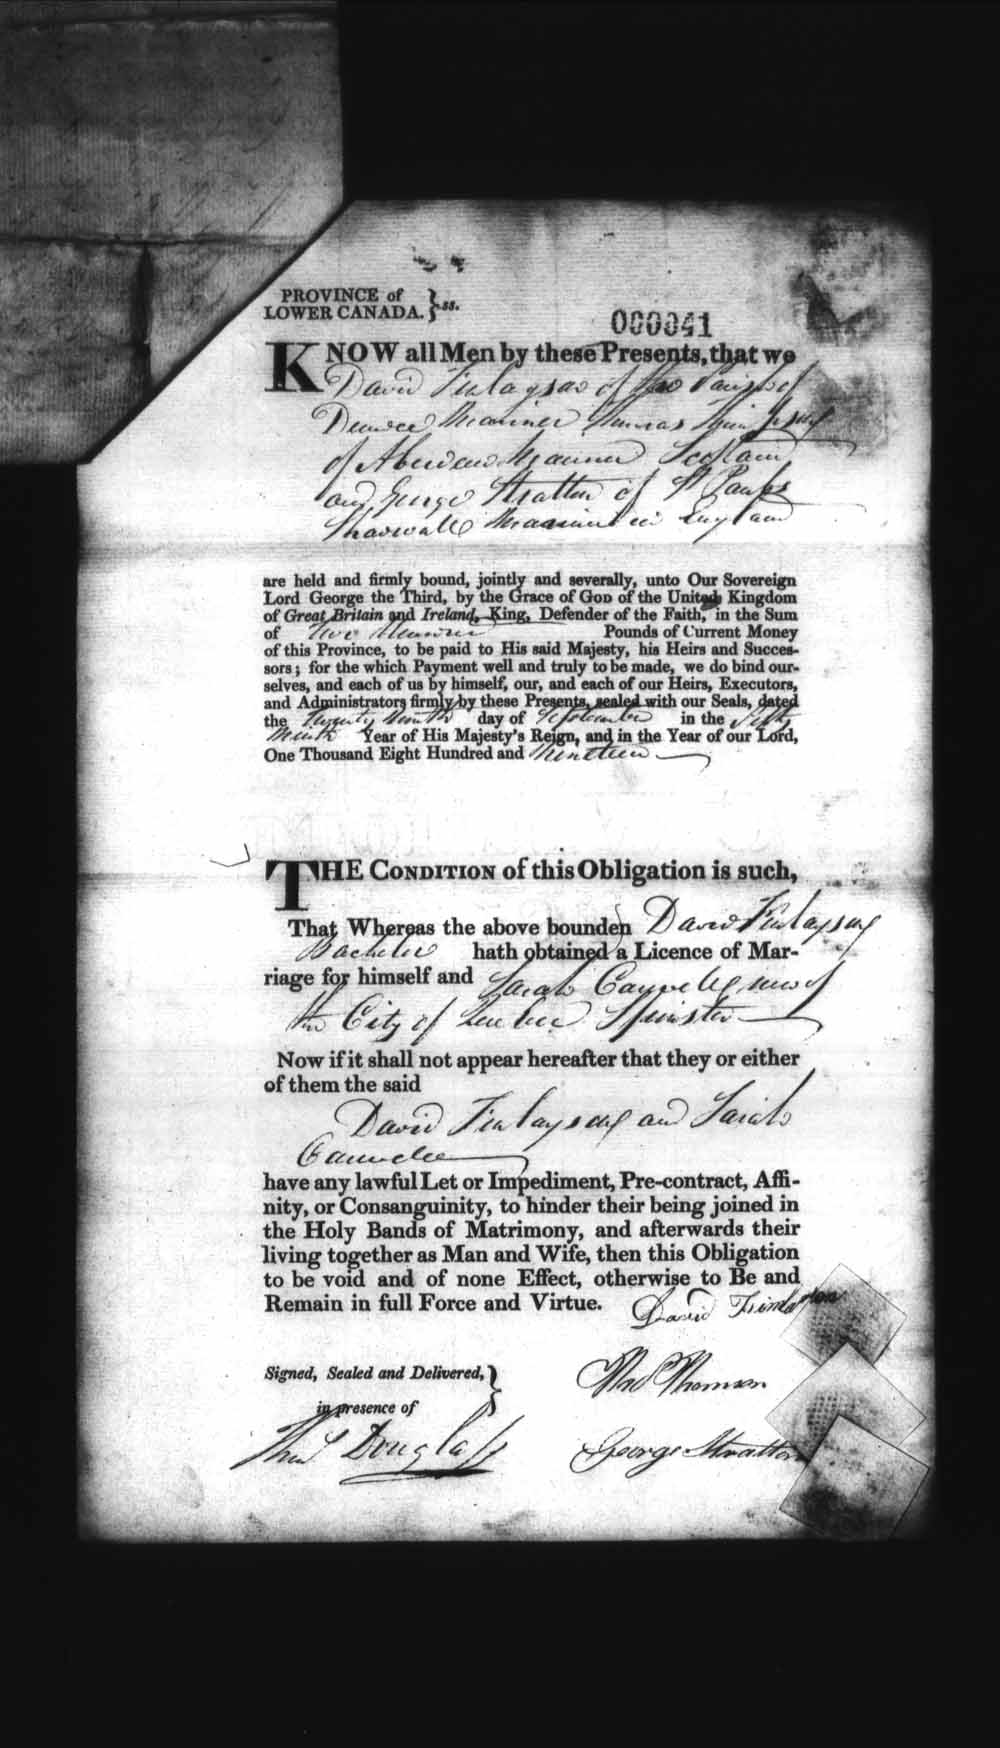 PROVINCE of
LOWER CANADA. } ss.
000041
KNOW all Men by these Presents, that we
David Finlayson of the Parish of
Mariner Thomas
of Aberdeen Mariner Scotland
and George Stratton of St Pauls
Shadwell Mariner in England
are held and firmly bound, jointly and severally, unto Our Sovereign
Lord George the Third, by the Grace of GOD of the United Kingdom
of Great Britain and Ireland, King, Defender of the Faith, in the Sum
of Two Hundred Pounds of Current Money
of this Province, to be paid to His said Majesty, his Heirs and Succes-
sors; for the which Payment well and truly to be made, we do bind our-
selves, and each of us by himself, our, and each of our Heirs, Executors,
and Administrators firmly by these Presents, sealed with our Seals, dated
the Twenty Ninth day of September in the Fifty
Ninth Year of His Majesty's Reign, and in the Year of our Lord,
One Thousand Eight Hundred and Nineteen
THE CONDITION of this Obligation is such,
That Whereas the above bounden David Finlayson
Bachelor hath obtained a Licence of Mar-
riage for himself and Sarah now of
the City of Quebec Spinster
Now if it shall not appear hereafter that they or either
of them the said
David Finlayson and Sarah
have any lawful Let or Impediment, Pre-contract, Affi-
nity, or Consanguinity, to hinder their being joined in
the Holy Bands of Matrimony, and afterwards their
living together as Man and Wife, then this Obligation
to be void and of none Effect, otherwise to Be and
Remain in full Force and Virtue.
David Finlayson
Signed, Sealed and Delivered, }
in presence of
Thos Thomson
Thos Douglass
George Stratton